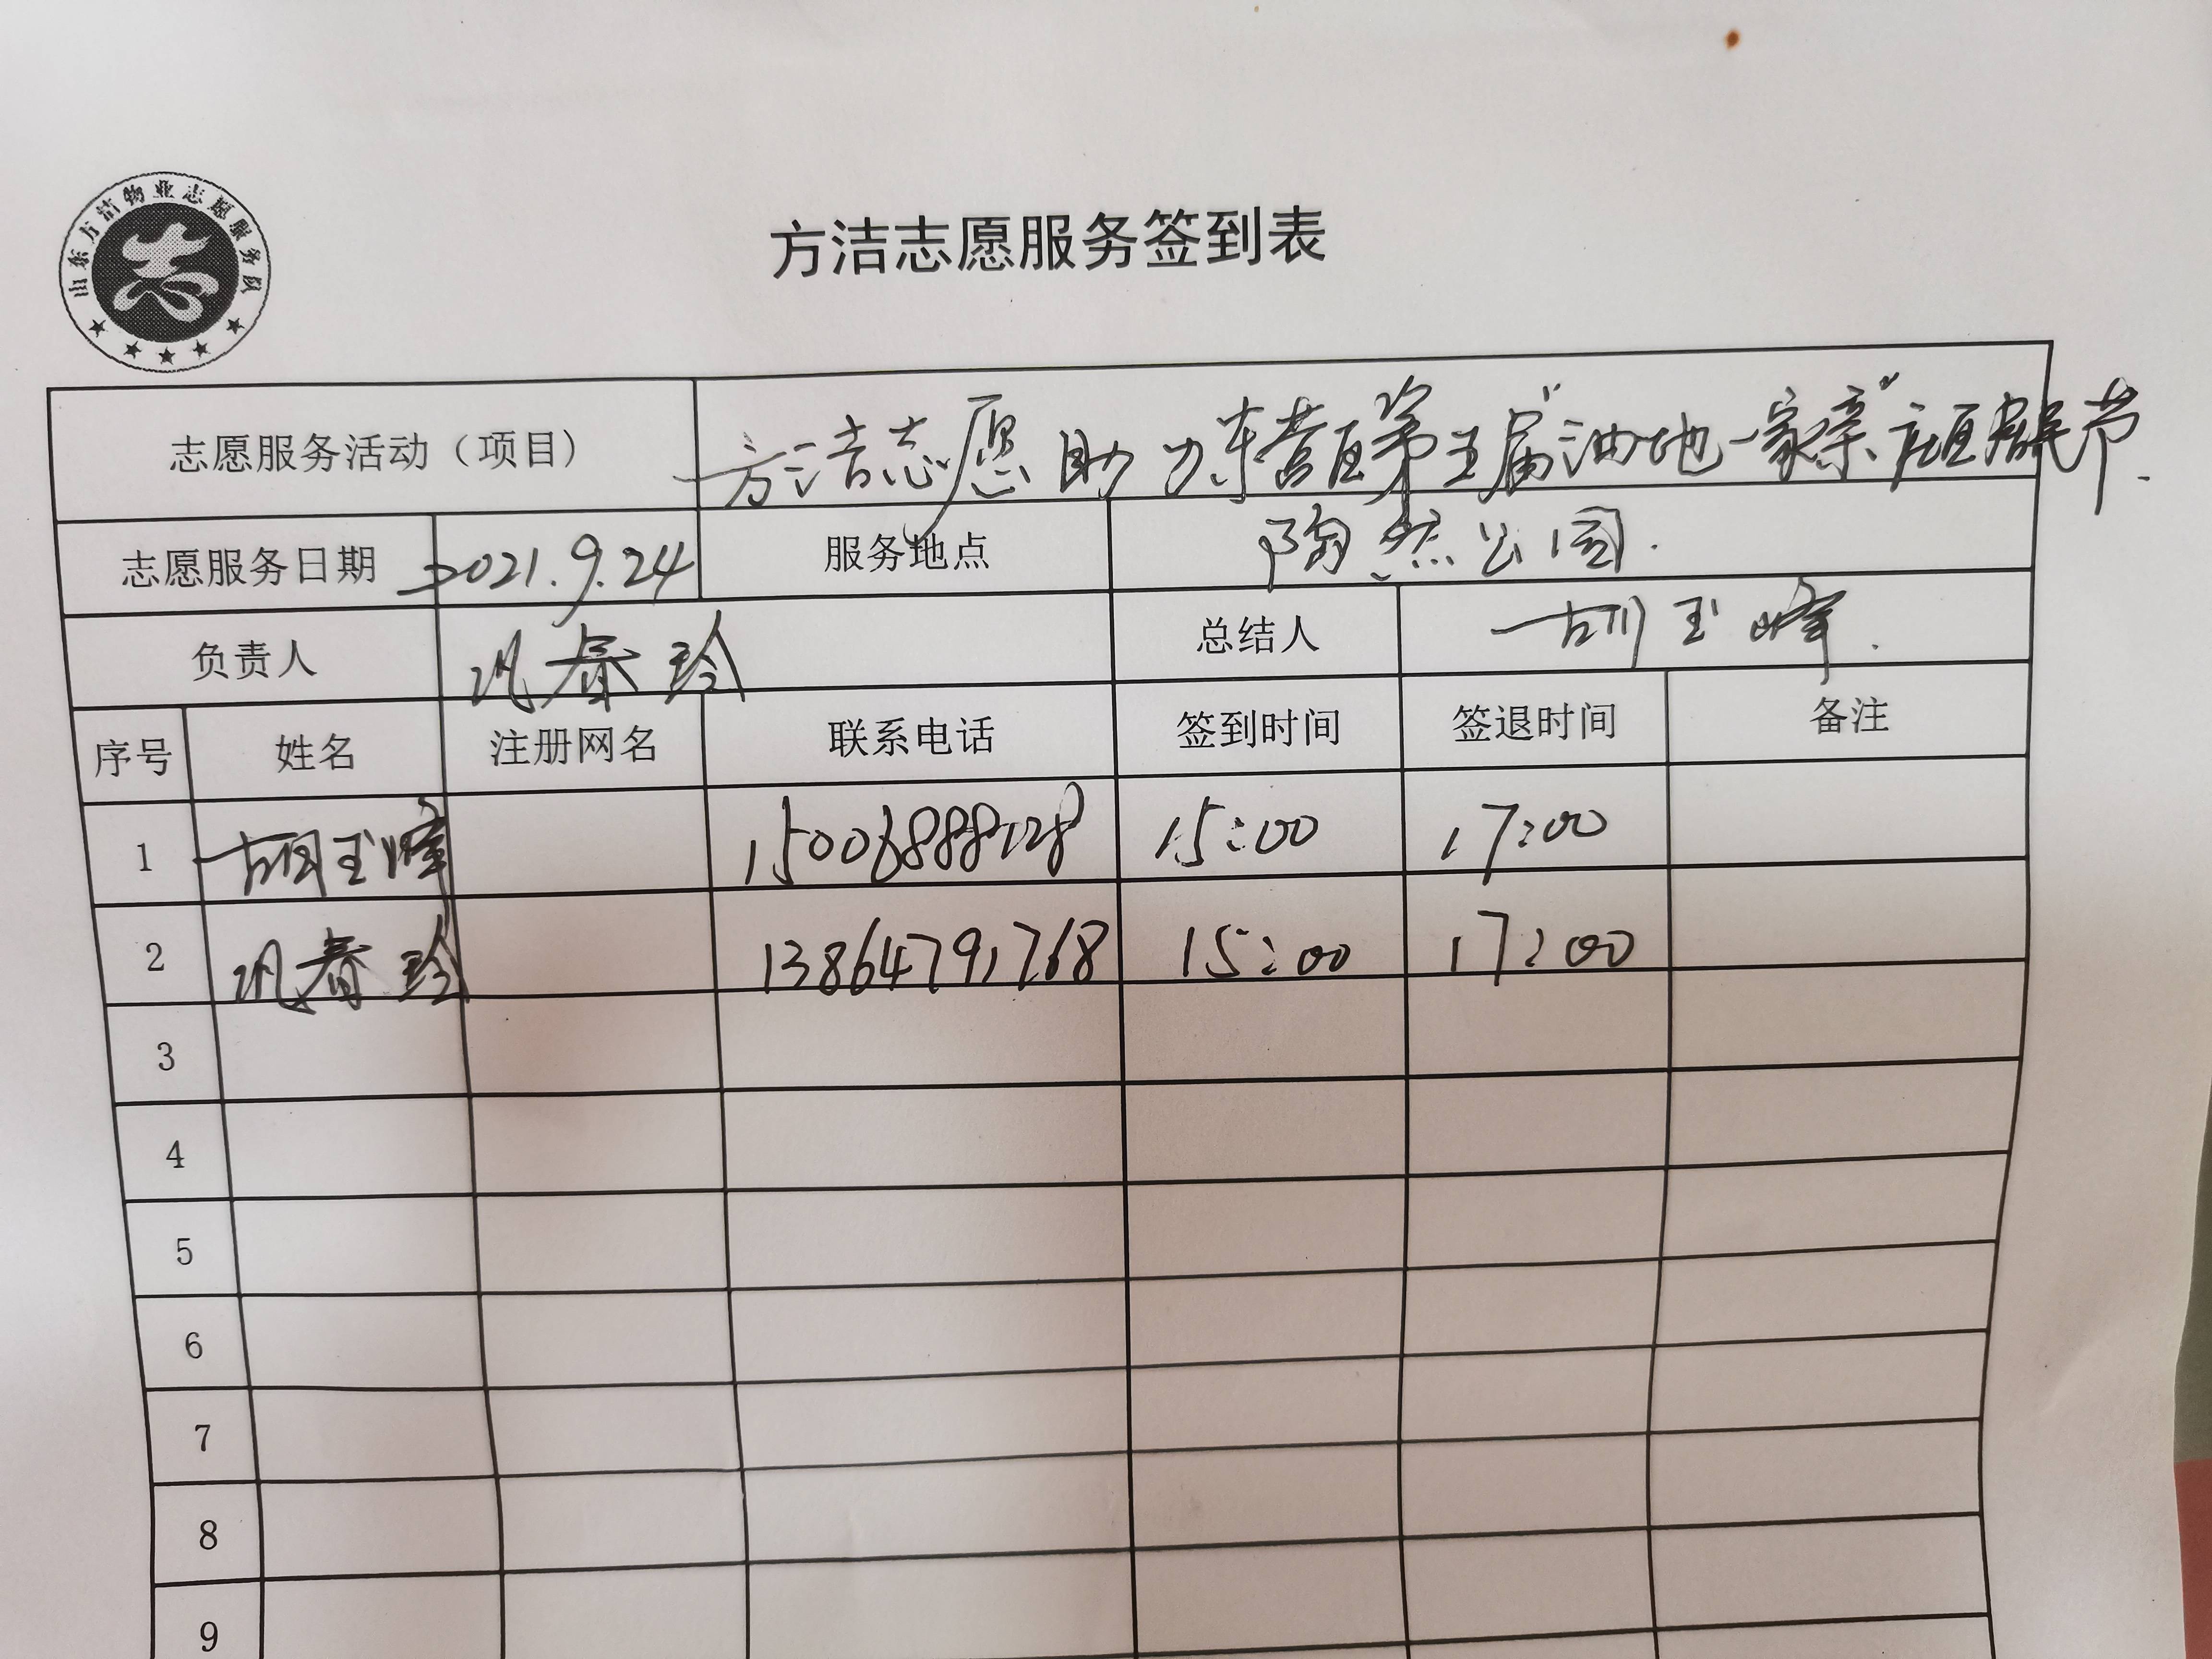 山东方洁物业志愿服务队
方洁志愿服务签到表
志愿服务活动（项目） 方洁志愿助力东营区第五届"油地一家亲"社区居民节.
志愿服务日期 2021.9.24 服务地点 陶然公园.
负责人 巩春玲 总结人 胡玉峰.
序号 姓名 注册网名 联系电话 签到时间 签退时间 备注
1 胡玉峰 15006888128 15:00 17:00
2 巩春玲 13864791768 15:00 17:00
3
4
5
6
7
8
9